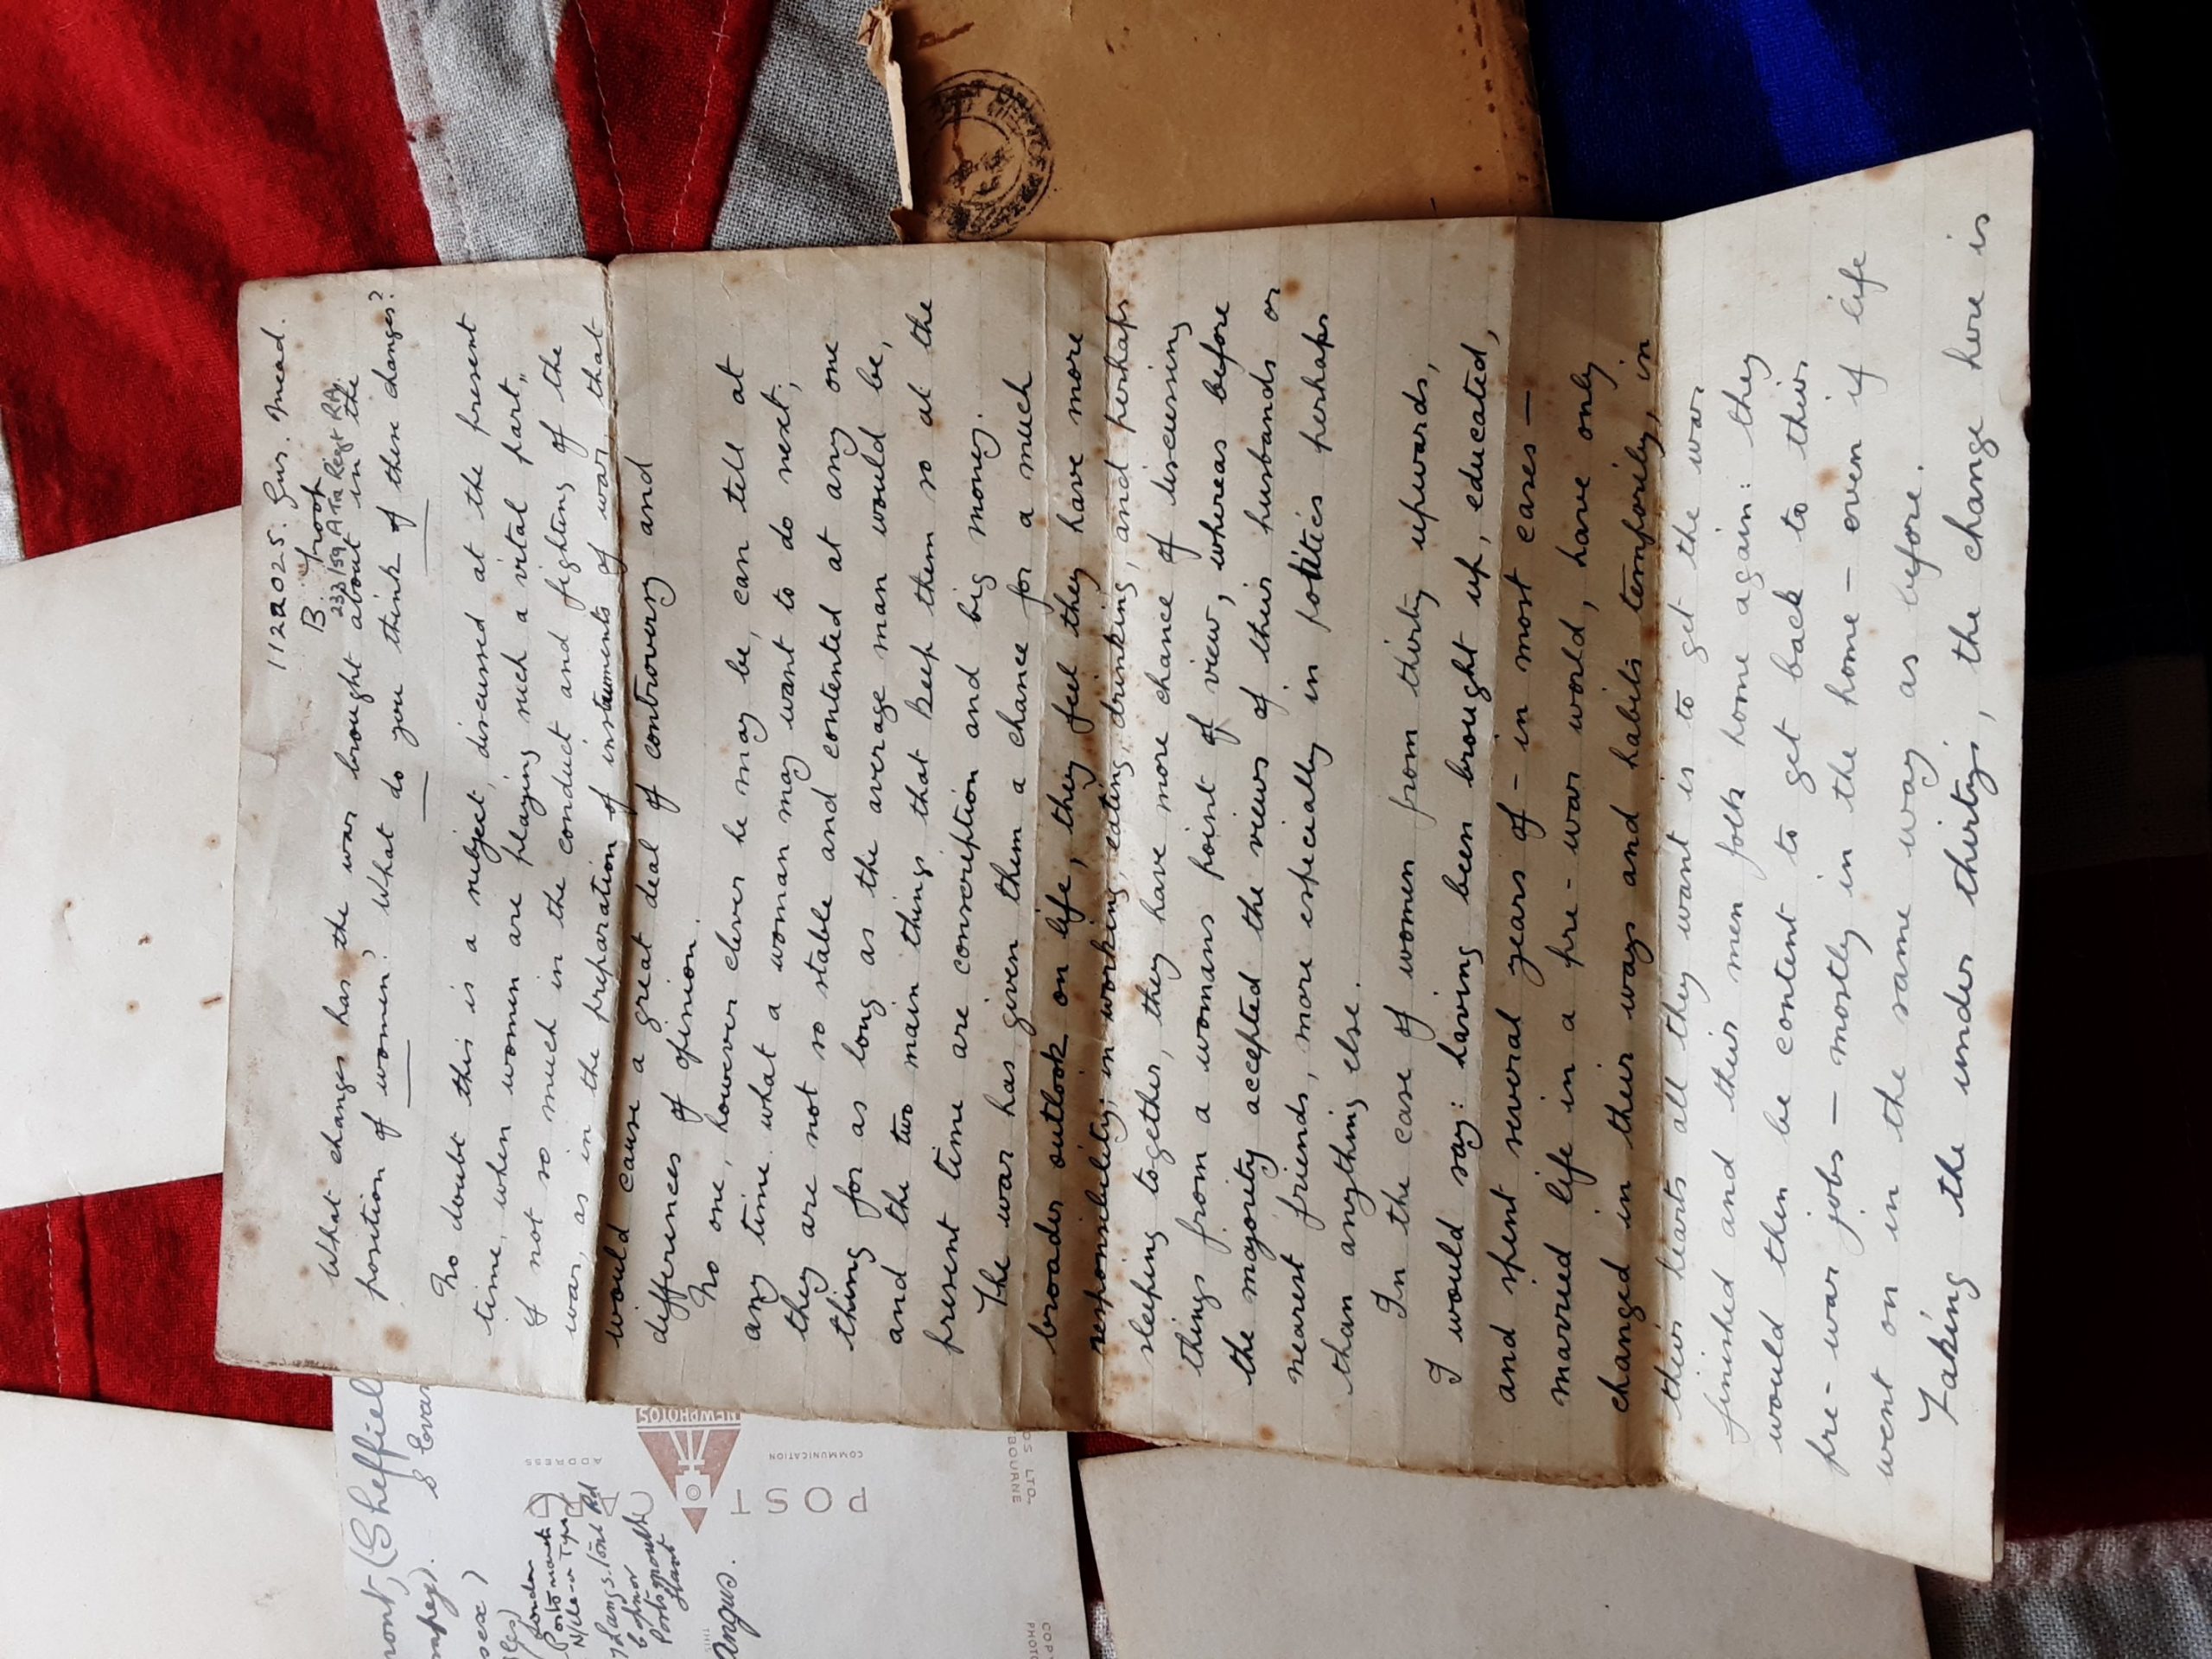 1122025. Gnr. Mead.
B Troop
233/59 A Tk Regt RA.
What changes has the war brought about in the
position of women? What do you think of these changes?
No doubt this is a subject, discussed at the present
time, when women are playing such a vital part,
if not so much in the conduct and fighting of the
war, as in the preparation of instruments of war that
would cause a great deal of controversy and
differences of opinion.
No one, however clever he may be, can tell at
any time what a woman may want to do next;
they are not so stable and contented at any one
thing for as long as the average man would be,
and the two main things that keep them so at the
present time are conscription and big money.
The war has given them a chance for a much
broader outlook on life, they feel they have more
responsibility; in working, eating, drinking, and perhaps
sleeping together, they have more chance of discussing
things from a womans point of view, whereas before
the majority accepted the views of their husbands or
nearest friends, more especially in politics perhaps
than anything else.
In the case of women from thirty upwards,
I would say: having been brought up, educated,
and spent several years of - in most cases -
married life in a pre-war world, have only
changed in their ways and habits temporily, in
their hearts all they want is to get the war
finished and their men folk home again: they
would then be content to get back to their
pre-war jobs - mostly in the home - even if life
went on in the same way as before.
Taking the under thirtys, the change here is
(Sheffield
London
Portsmouth
Langstone Rd
Portsmouth
Hants
Angus.
POST
ADDRESS
COMMUNICATION
NEWPHOTOS
THIS